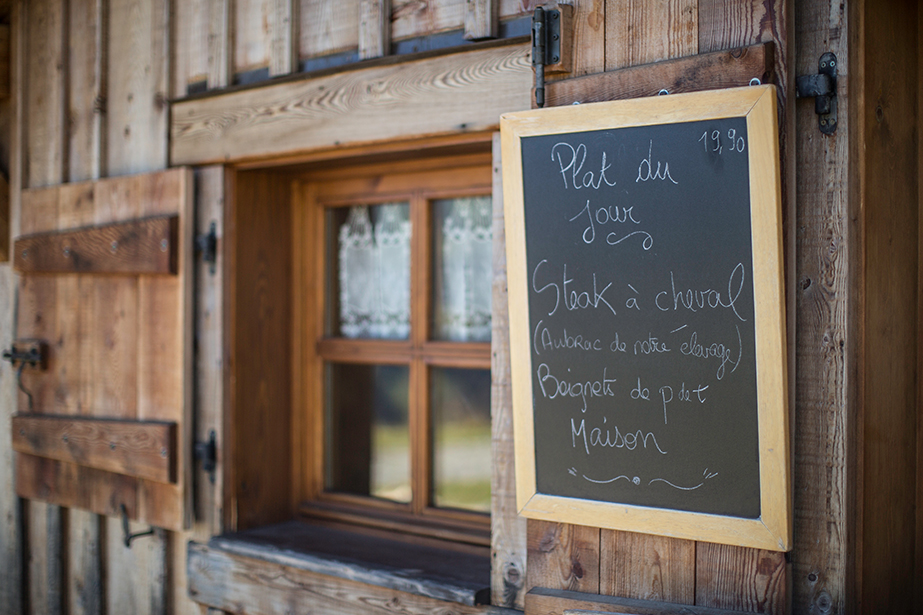 19,90
Plat du
Jour
Steak à cheval
(Aubrac de notre élevage)
Beignets de p de t
Maison